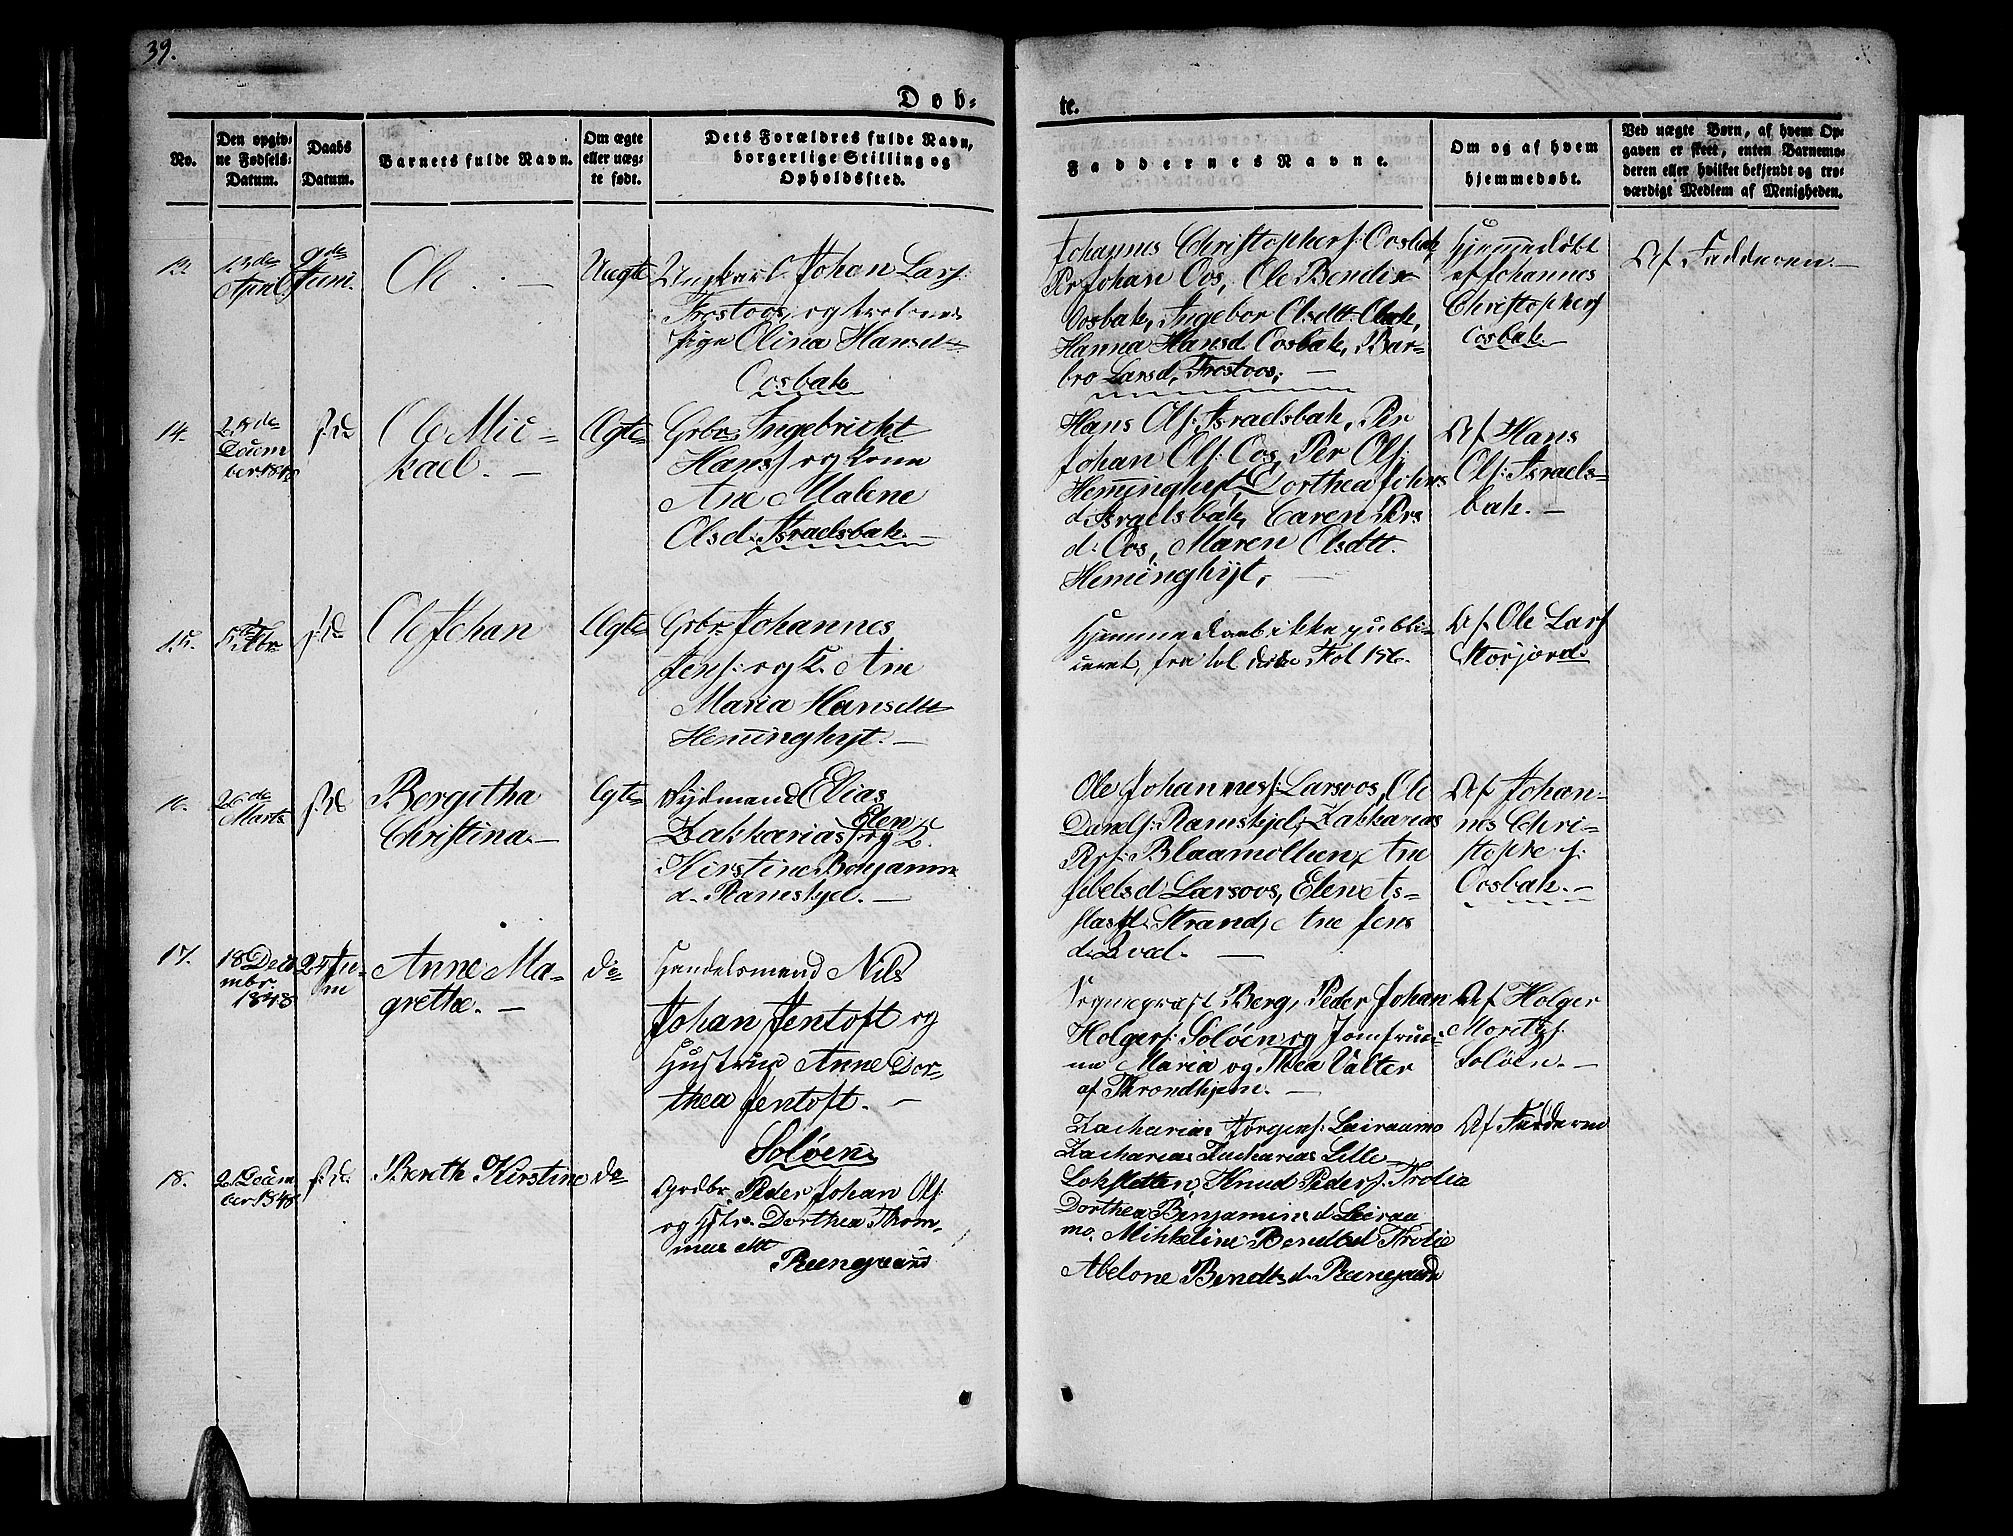 39.
Dob-
te.
No.
Den opgiv-
ne Fødsels-
Datum.
Daabs
Datum.
Barnets fulde Navn.
Om ægte
eller uæg-
te født.
Dets Forældres fulde Navn,
borgerlige Stilling og
Opholdssted.
Faddernes Navne.
Om og af hvem
hjemmedøbt.
Ved uægte Børn, af hvem Op-
gaven er skeet, enten Barnemo-
deren eller hvilket bekjendt og tro-
værdigt Medlem af Menigheden.
13.
13de
April
9de
Juni.
Ole. —
Uægte
Ungkarl Johan Lars:
Frostoos, og
Pige Olina Hansd
Oosbak
Johannes Christophers: Oosbak,
Per Johan Oos, Ole Bendix
Oosbak, Ingebor Olsdtt: Oosbak,
Hanna Hansd. Oosbak, Bar-
bro Larsd, Frostoos; —
Hjemmedøbt
af Johannes
Christophers
Oosbak
Af Fadderen. —
14.
Decem
ber 1848
s: D.
Ole Mic-
kael. —
Ægte
Grbr. Ingebricht
Hanss og kone
Ane Malene
Olsd. Israelsbak. —
Hans Ols: Israelsbak, Per
Johan Ols: Oos, Per Ols:
Heminghyt, Dorthea Johns
d Israelsbak, Caren Prs
d: Oos, Maren Olsdtt.
Heminghyt, —
Af Hans
Ols: Israels-
bak. —
15.
5te Fbr
s: D.
Ole Johan
Ægte
Grbr. Johannes
Jens: og K. Ane
Maria Hansdtt
Heminghyt. —
Hjemmedaab ikke publi-
ceret, Fol 156.
Af Ole Lars
Storjord
16.
26de
Marts
s: D.
Bergitha
Christina. —
Ægte
Elias
Zakkarias: og K. Elen
Kirstine Benjamin
d. Ramskjel. —
Ole Johanness: Larsoos, Ole
Danels: Ramskjel, Zakkarias
Prs: Blaamollen, Ane
Jebelsd Larsoos, Elen Ts-
Strand, Ane Jens
d. Qval. —
Af Johan-
nes Chri-
stophers:
Oosbak. —
17.
18 Dec
mbr.
1848
24 Ju-
ni
Anne Ma-
grethe. —
do
Handelsmand Nils
Johan Jentoft og
Hustrue Anne Dor-
thea Jentoft. —
Soløen
Sognepræst Berg, Peder Johan
Holgers: Soløen og Jomfrue-
ne Maria og Thea Valter
af Throndhjem. —
Af Holger
Moritzs:
Soløen. —
18.
2 Decem
ber 1848
s: D.
Bereth Kirstine
do
Grdbr. Peder Johan Ols:
og Hstr. Dorthea Thom-
mes dtt
Reengaard
Zacharias Jørgens: Leiraamo
Zacharias Zacharias Lille
Lohsletten, Knud Peders: Trolia
Dorthea Benjamins d Leiraa
mo, Mikkeline Bendtsd Trolia
Abelone Bendts d. Reengaard
Af Fadderne